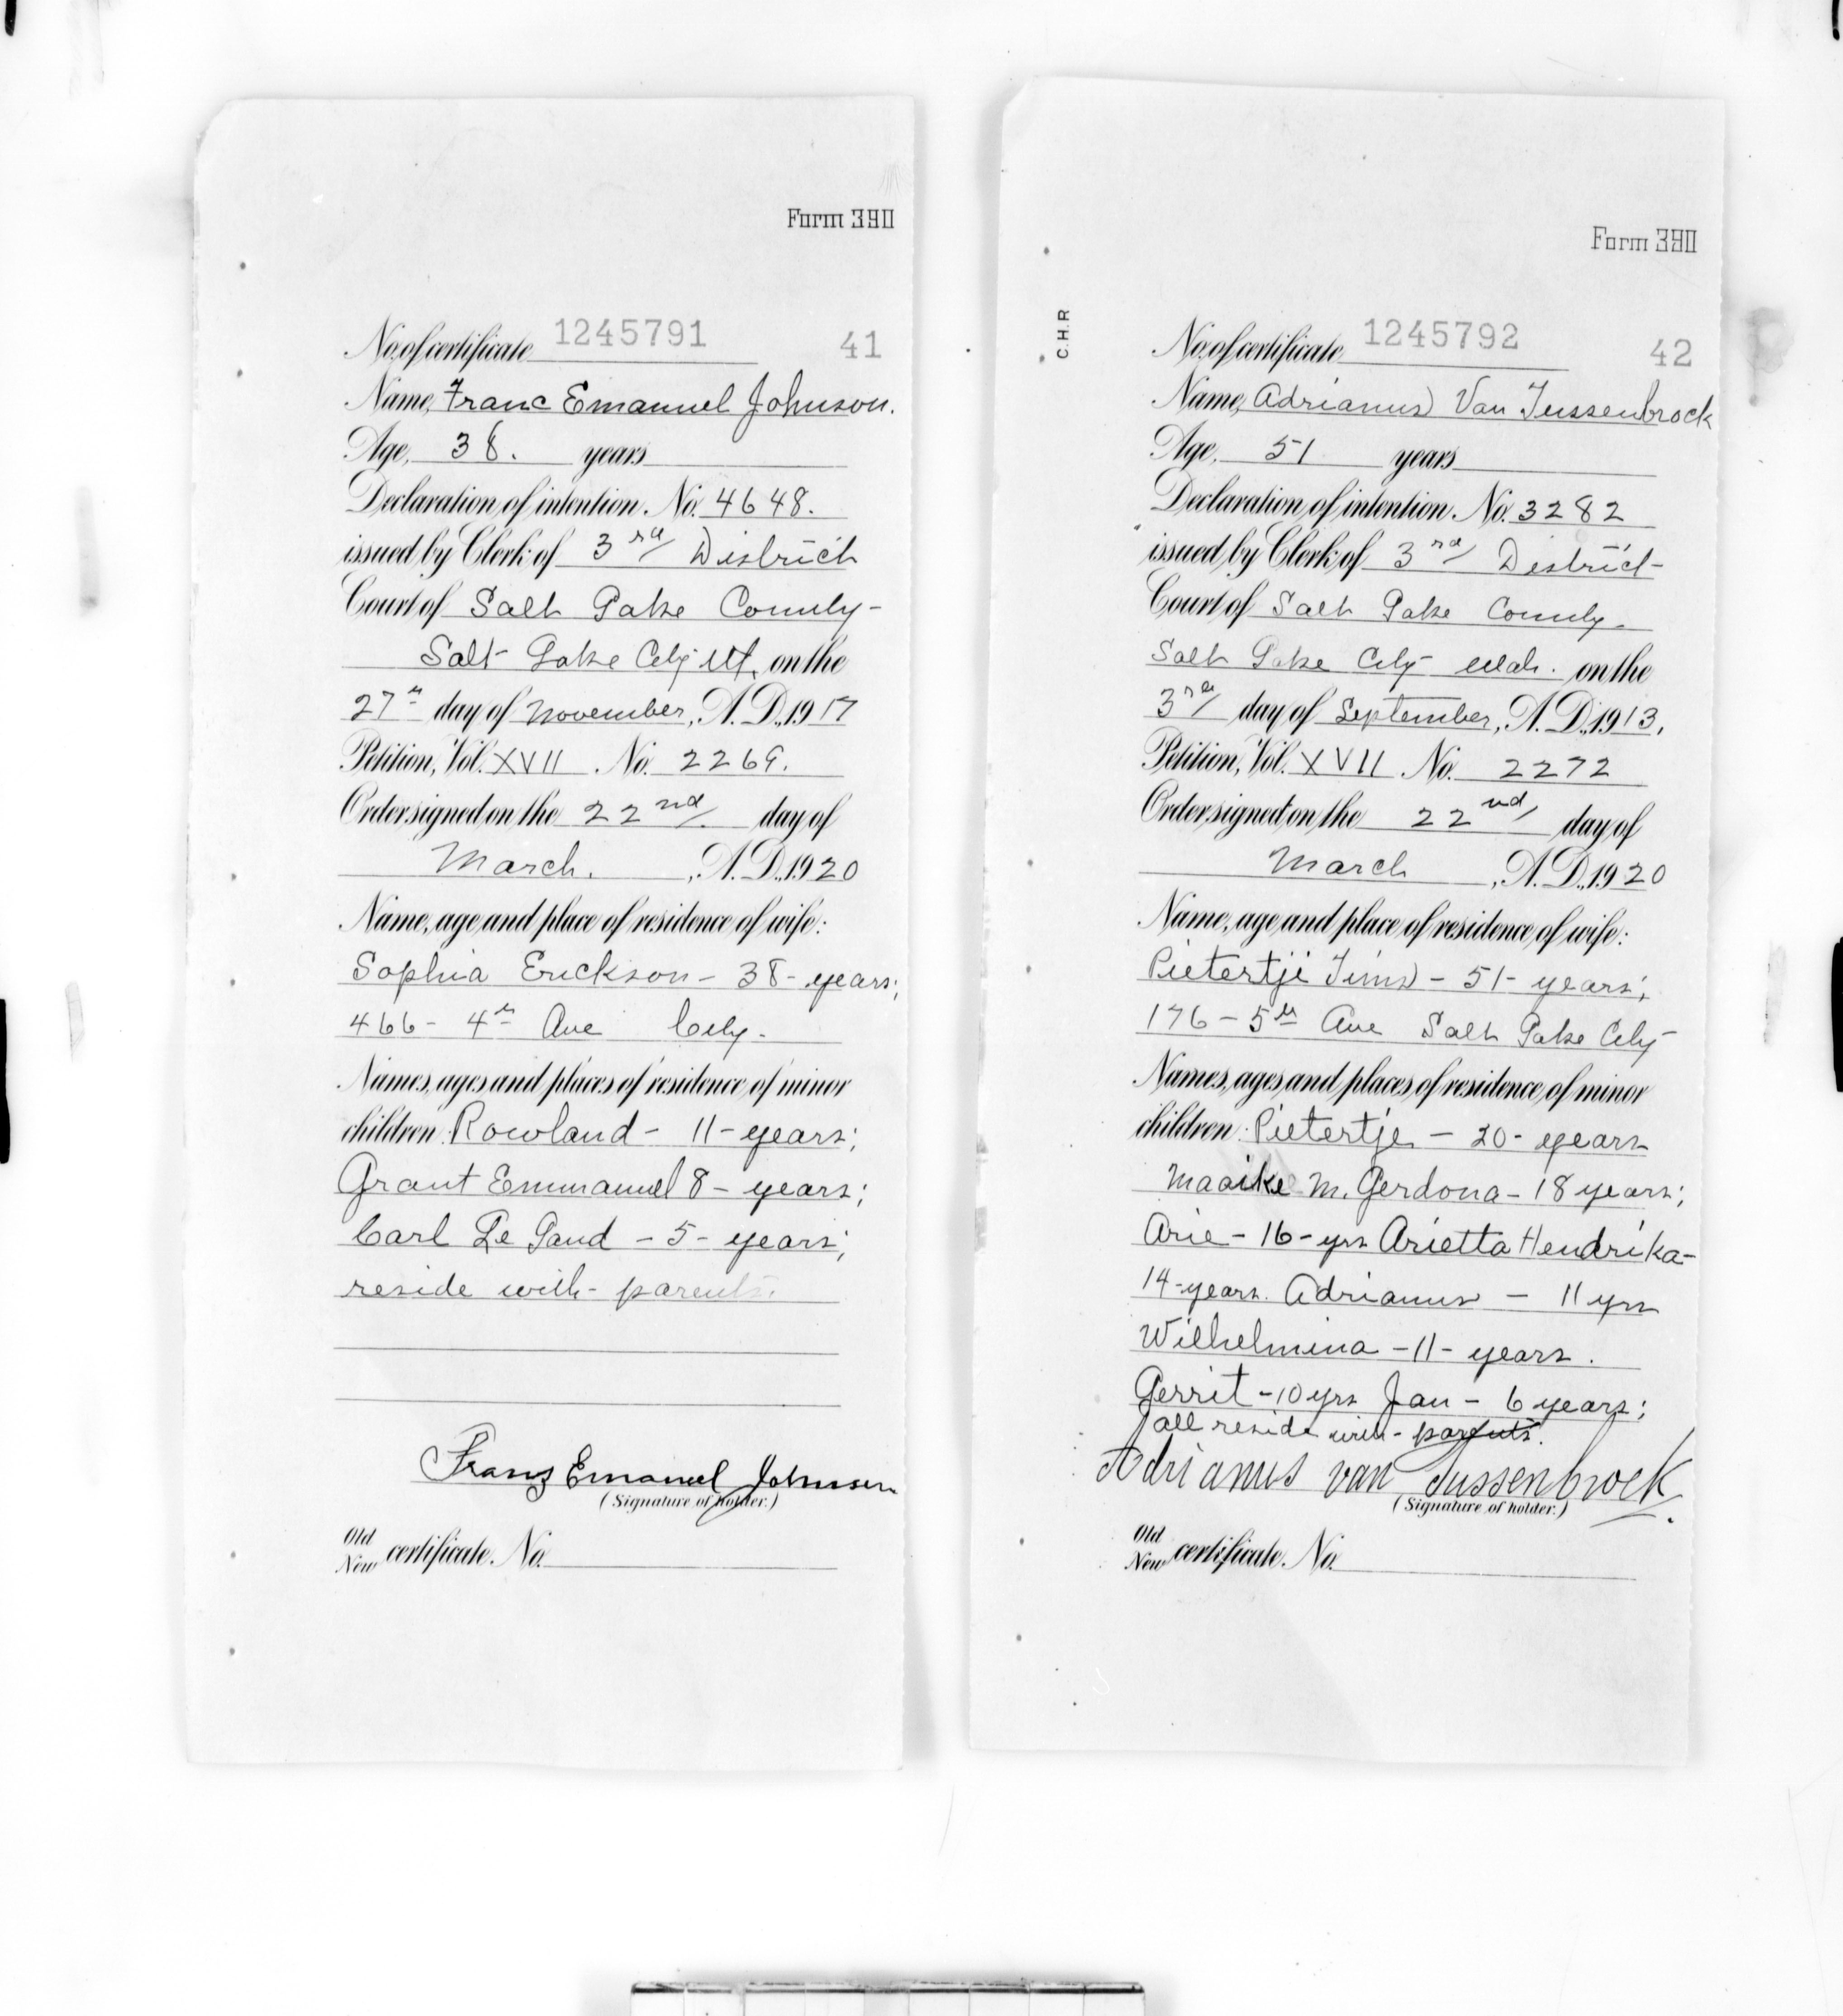 Form 390
No. of certificate 1245791 41
Name, Franc Emanuel Johnson.
Age, 38. years
Declaration of intention. No. 4648.
issued by Clerk of 3rd District
Court of Salt Lake County-
Salt Lake City Ut. on the
27th day of November, A.D., 1917
Petition, Vol. XVII No. 2269.
Order signed on the 22nd day of
March. , A.D., 1920
Name, age and place of residence of wife:
Sophia Erickson - 38 - years;
466 - 4th Ave City -
Names, ages and places of residence of minor
children Rowland - 11 - years;
Grant Emmanuel 8 - years;
Carl Le Gand - 5 - years;
reside with - parents.
Franz Emanuel Johnson
(Signature of holder.)
Old
New certificate. No.
Form 390
C.H.R
No. of certificate 1245792 42
Name, Adrianus Van Tussenbrock
Age, 51 years
Declaration of intention. No. 3282
issued by Clerk of 3rd District -
Court of Salt Lake County -
Salt Lake City Utah. on the
3rd day of September, A.D., 1913,
Petition, Vol. XVII No. 2272
Order signed on the 22nd day of
March , A.D., 1920
Name, age and place of residence of wife:
Pietertji - 51 - years;
176 - 5th Ave Salt Lake City
Names, ages and places of residence of minor
children: Pietertje - 20 - years
Maaike M. Gerdona - 18 years;
Arie - 16 - yrs Arietta Hendrika -
14 - years. Adrianus - 11 yrs
Wilhelmina - 11 - years.
Gerrit - 10 yrs Jan - 6 years;
all reside with - parents.
Adrianus van Tussenbroek.
(Signature of holder.)
Old
New certificate. No.